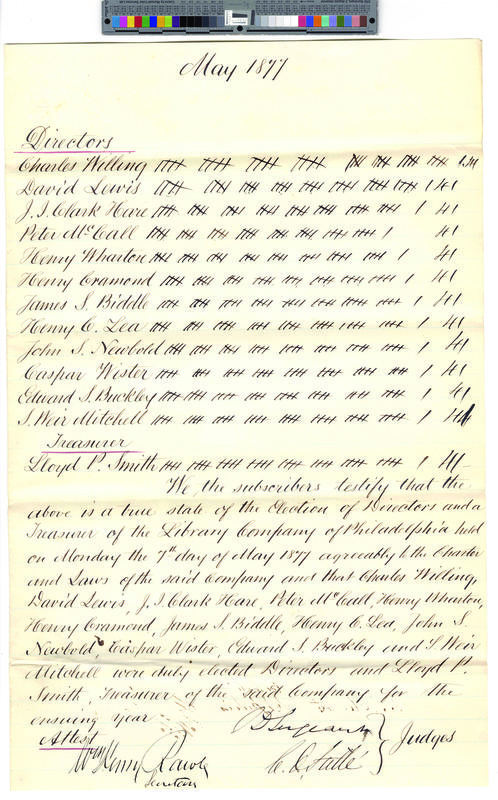 May 1877
Directors
Charles Welling 1 41
David Lewis 1 41
J. I. Clark Hare 1 41
Peter McCall 1 41
Henry Wharton 1 41
Henry Cramond 1 41
James S. Biddle 1 41
Henry C. Lea 1 41
John S. Newbold 1 41
Caspar Wister 1 41
Edward S. Buckley 1 41
S. Weir Mitchell 1 41
Treasurer
Lloyd P. Smith 1 41
We, the subscribers testify that the
above is a true state of the Election of Directors and a
Treasurer of the Library Company of Philadelphia held
on Monday the 7th day of May 1877 agreeably to the Charter
and Laws of the said Company and that Charles Willing,
David Lewis, J. I. Clark Hare, Peter McCall, Henry Wharton,
Henry Cramond, James S. Biddle, Henry C. Lea, John S.
Newbold, Caspar Wister, Edward S. Buckley and S. Weir
Mitchell were duly elected Directors and Lloyd P.
Smith, Treasurer of the said Company for the
ensuing year.
Sergeant
Attest
Judges
Wm Henry Rawle
Secretary